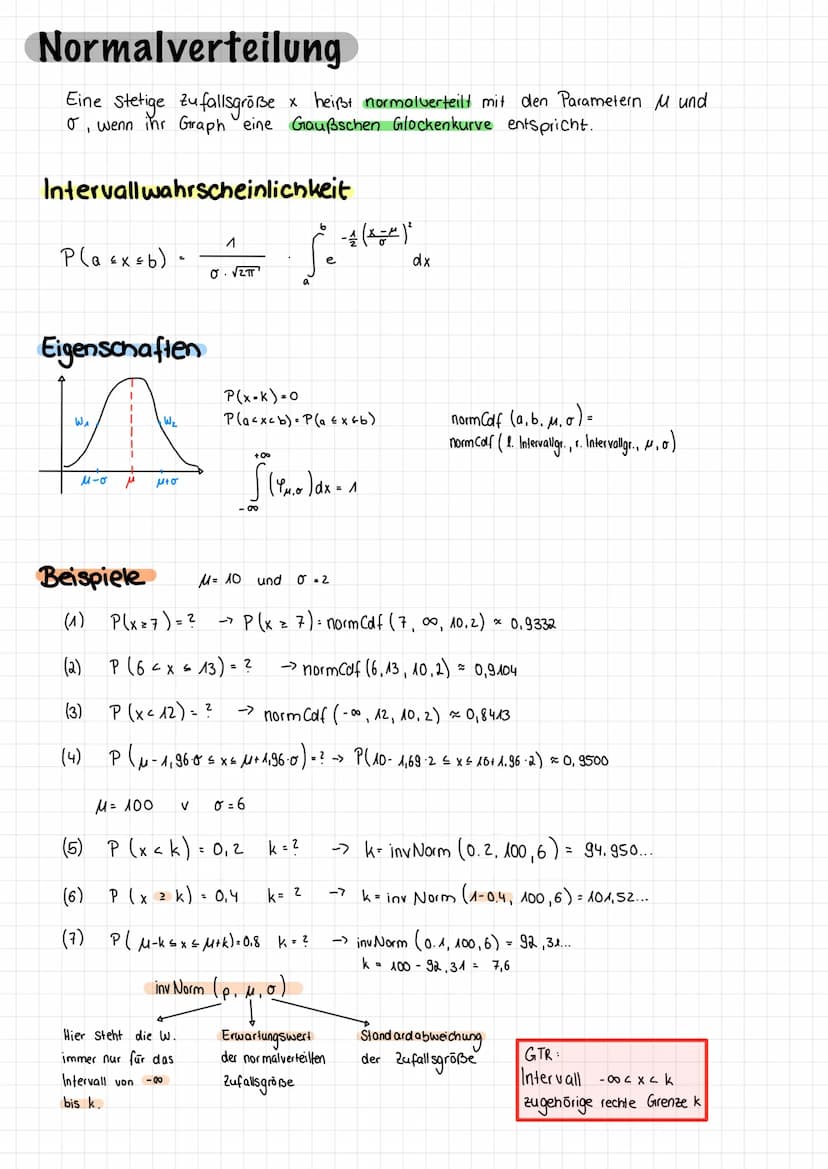 Normalverteilung
Eine stetige Zufallsgröße x heißt normalverteilt mit den Parametern μ und
σ, wenn ihr Graph eine Gaußschen Glockenkurve entspricht.
Intervallwahrscheinlichkeit
P(a ≤ x ≤ b) = 1/(σ·√2π) · ∫_a^b e^(-1/2((x-μ)/σ)²) dx
Eigenschaften
W₁ W₂
μ-σ μ μ+σ
P(x=k)=0
P(a<x<b)=P(a≤x≤b)
∫_-∞^+∞ (φ_μ,σ)dx = 1
normCdf (a,b,μ,σ)=
normCdf (l. Intervallgr., r. Intervallgr., μ,σ)
Beispiele μ= 10 und σ=2
(1) P(x≥7)=? → P(x ≥ 7)= normCdf (7, ∞, 10,2) ≈ 0,9332
(2) P(6<x≤13)=? → normCdf (6,13,10,2) ≈ 0,9104
(3) P(x<12)=? → normCdf (-∞, 12, 10, 2) ≈ 0,8413
(4) P(μ-1,96·σ ≤ x ≤ μ+1,96·σ)=? → P(10-1,69·2 ≤ x ≤ 10+1.96·2) ≈ 0,9500
μ= 100 v σ=6
(5) P(x<k)=0,2 k=? → k= invNorm (0.2, 100,6) = 94.950...
(6) P(x≥k)=0,4 k=? → k= inv Norm (1-0.4, 100,6)=101,52...
(7) P(μ-k≤x≤μ+k)=0.8 k=? → invNorm (0.1, 100,6) = 92,31...
k= 100-92,31= 7,6
inv Norm (p, μ, σ)
Hier steht die W.
immer nur für das
Intervall von -∞
bis k.
Erwartungswert
der normalverteilten
Zufallsgröße
Standardabweichung
der Zufallsgröße
GTR:
Intervall -∞<x<k
zugehörige rechte Grenze k